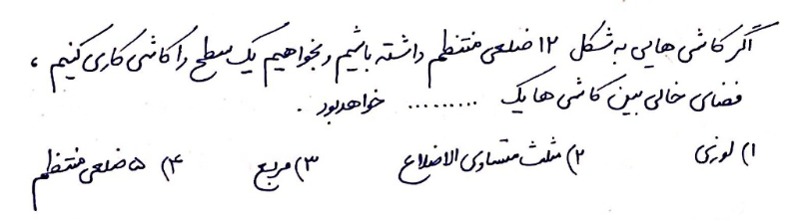 اگر کاشی هایی به شکل ۱۲ ضلعی منتظم داشته باشیم و بخواهیم یک سطح را کاشی کاری کنیم ،
فضای خالی بین کاشی ها یک ......... خواهد بود .
۱) لوزی ۲) مثلث متساوی الاضلاع ۳) مربع ۴) ۵ ضلعی منتظم